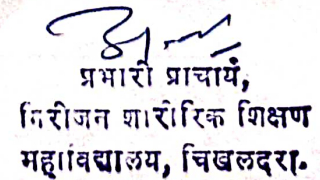 प्रभारी प्राचार्य,
गिरीजन शारीरिक शिक्षण
महाविद्यालय, चिखलदरा.